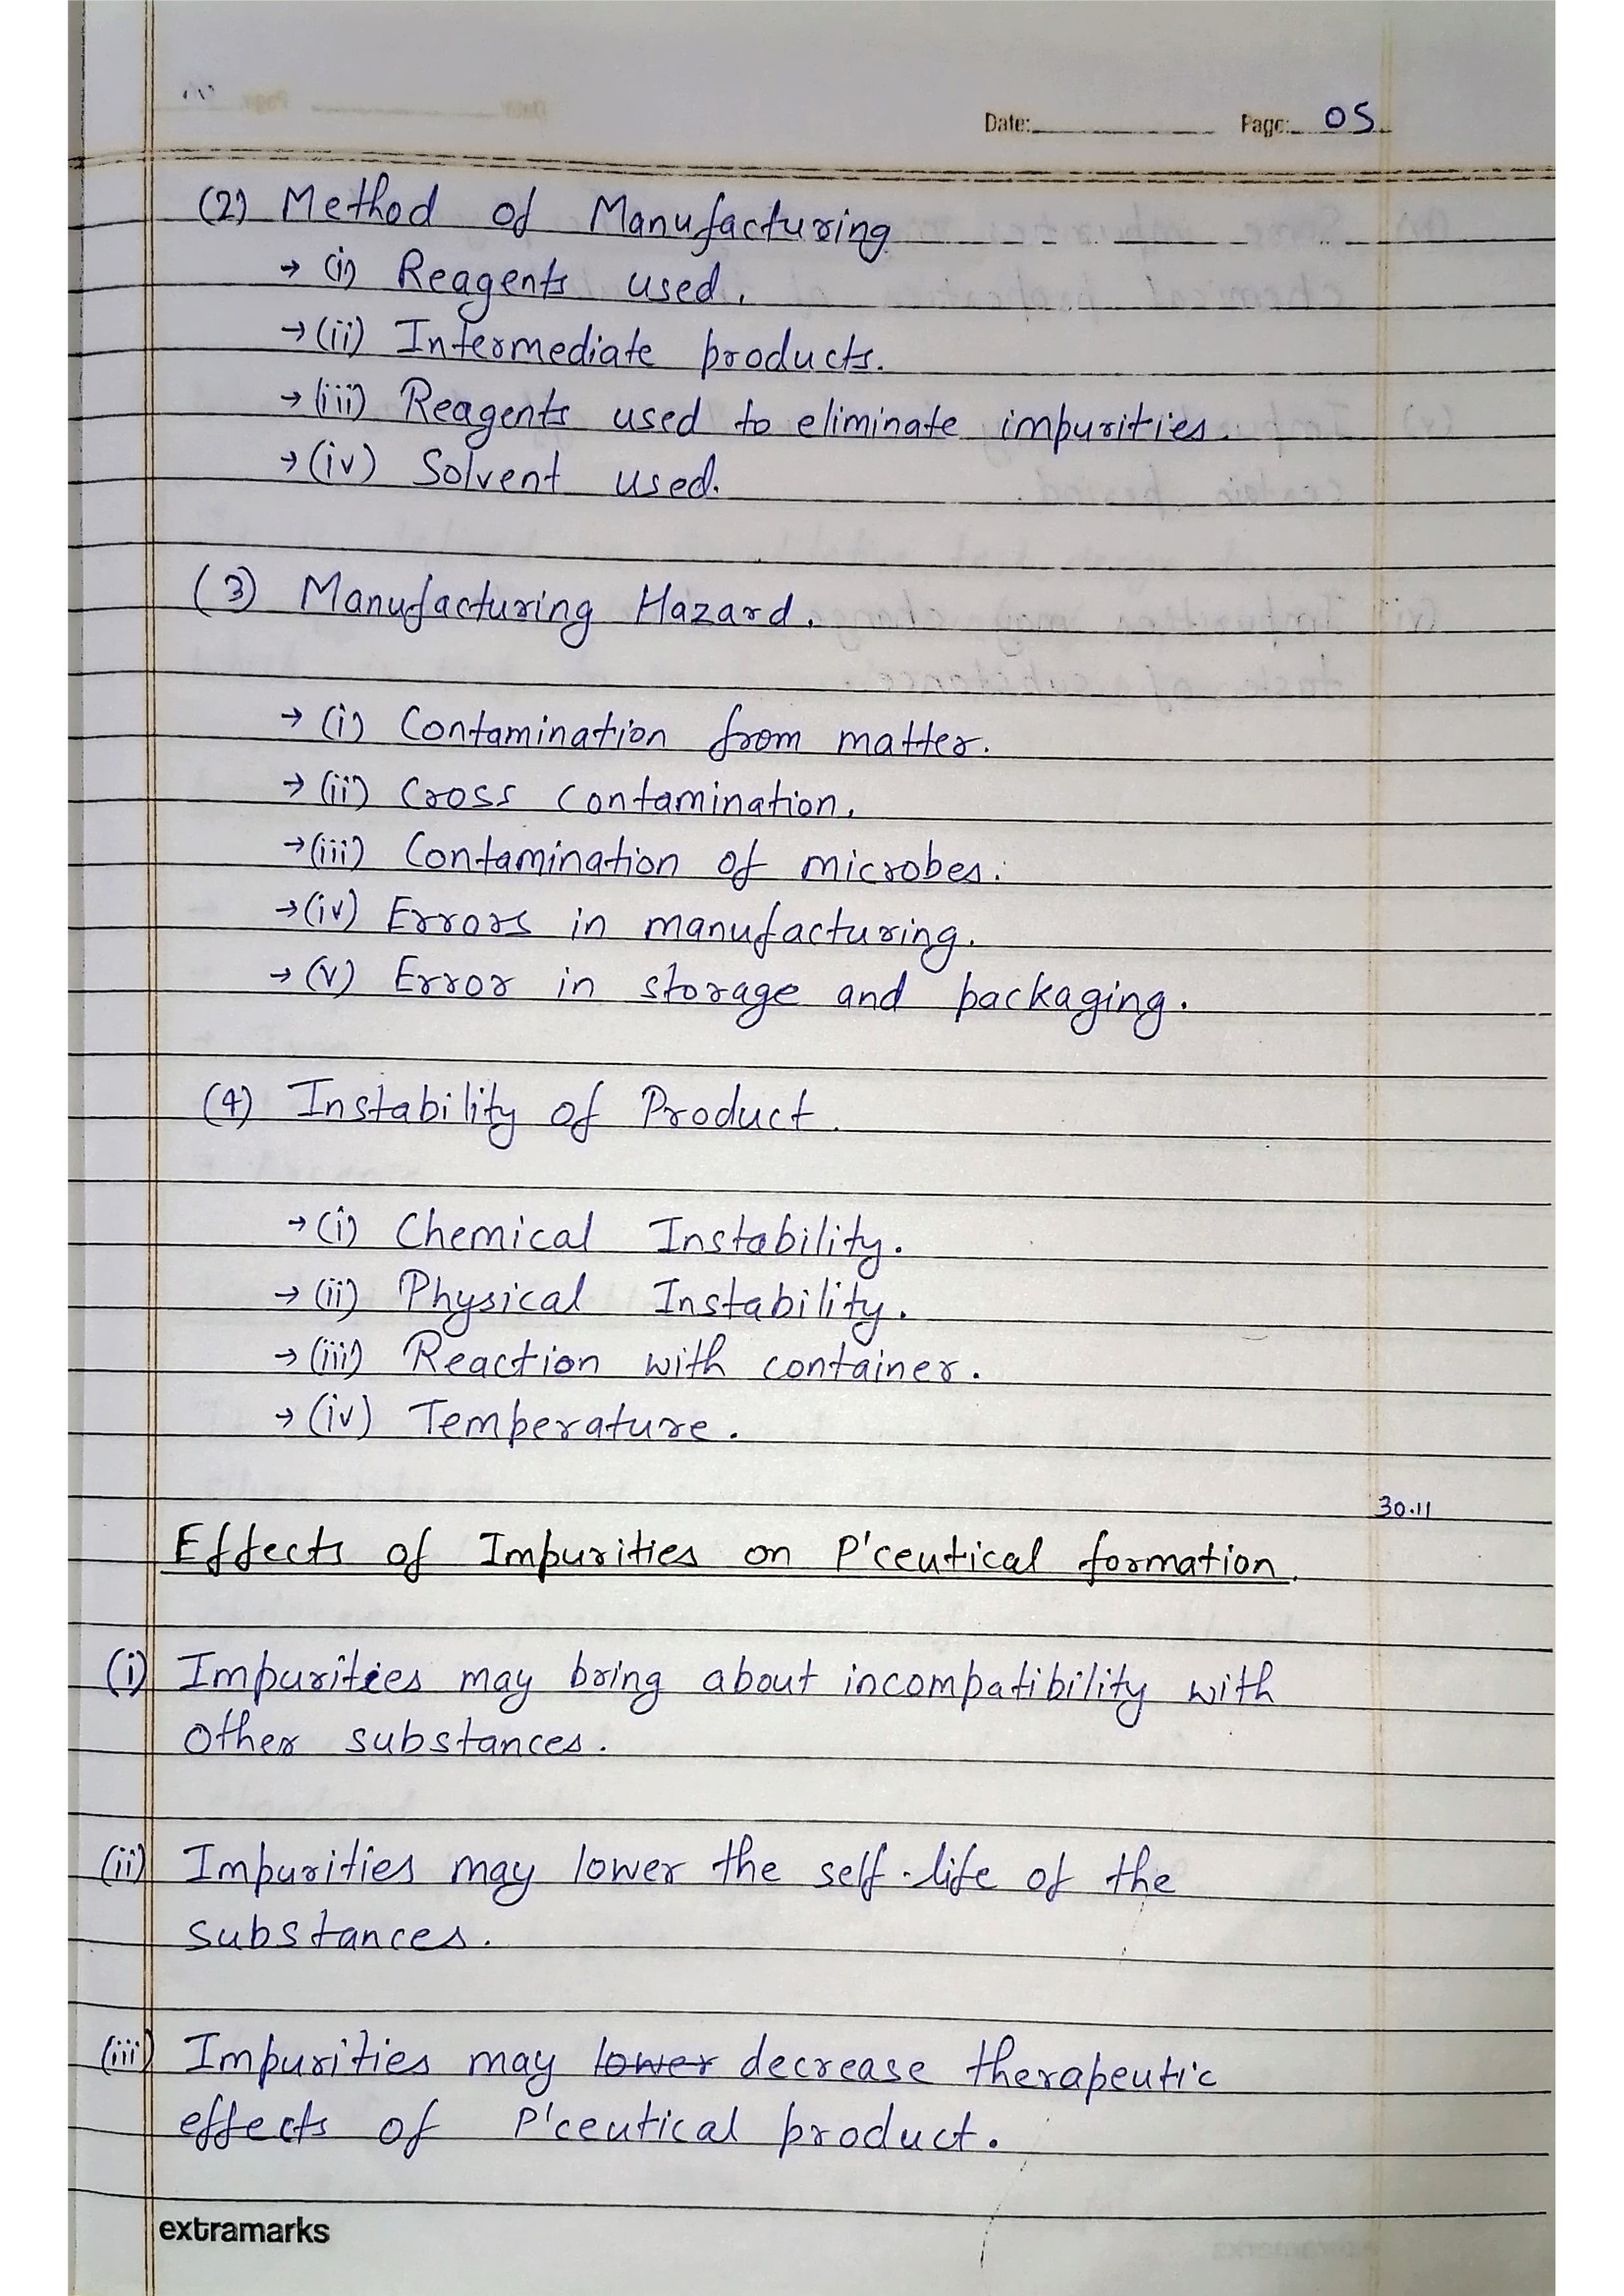 Date: Page: 05
(2) Method of Manufacturing
→ (i) Reagents used.
→ (ii) Intermediate products.
→ (iii) Reagents used to eliminate impurities.
→ (iv) Solvent used.
(3) Manufacturing Hazard.
→ (i) Contamination from matter.
→ (ii) Cross Contamination.
→ (iii) Contamination of microbes.
→ (iv) Errors in manufacturing.
→ (v) Error in storage and packaging.
(4) Instability of Product.
→ (i) Chemical Instability.
→ (ii) Physical Instability.
→ (iii) Reaction with container.
→ (iv) Temperature.
30.11
Effects of Impurities on P'ceutical formation.
(i) Impurities may bring about incompatibility with
other substances.
(ii) Impurities may lower the self-life of the
substances.
(iii) Impurities may lower decrease therapeutic
effects of P'ceutical product.
extramarks